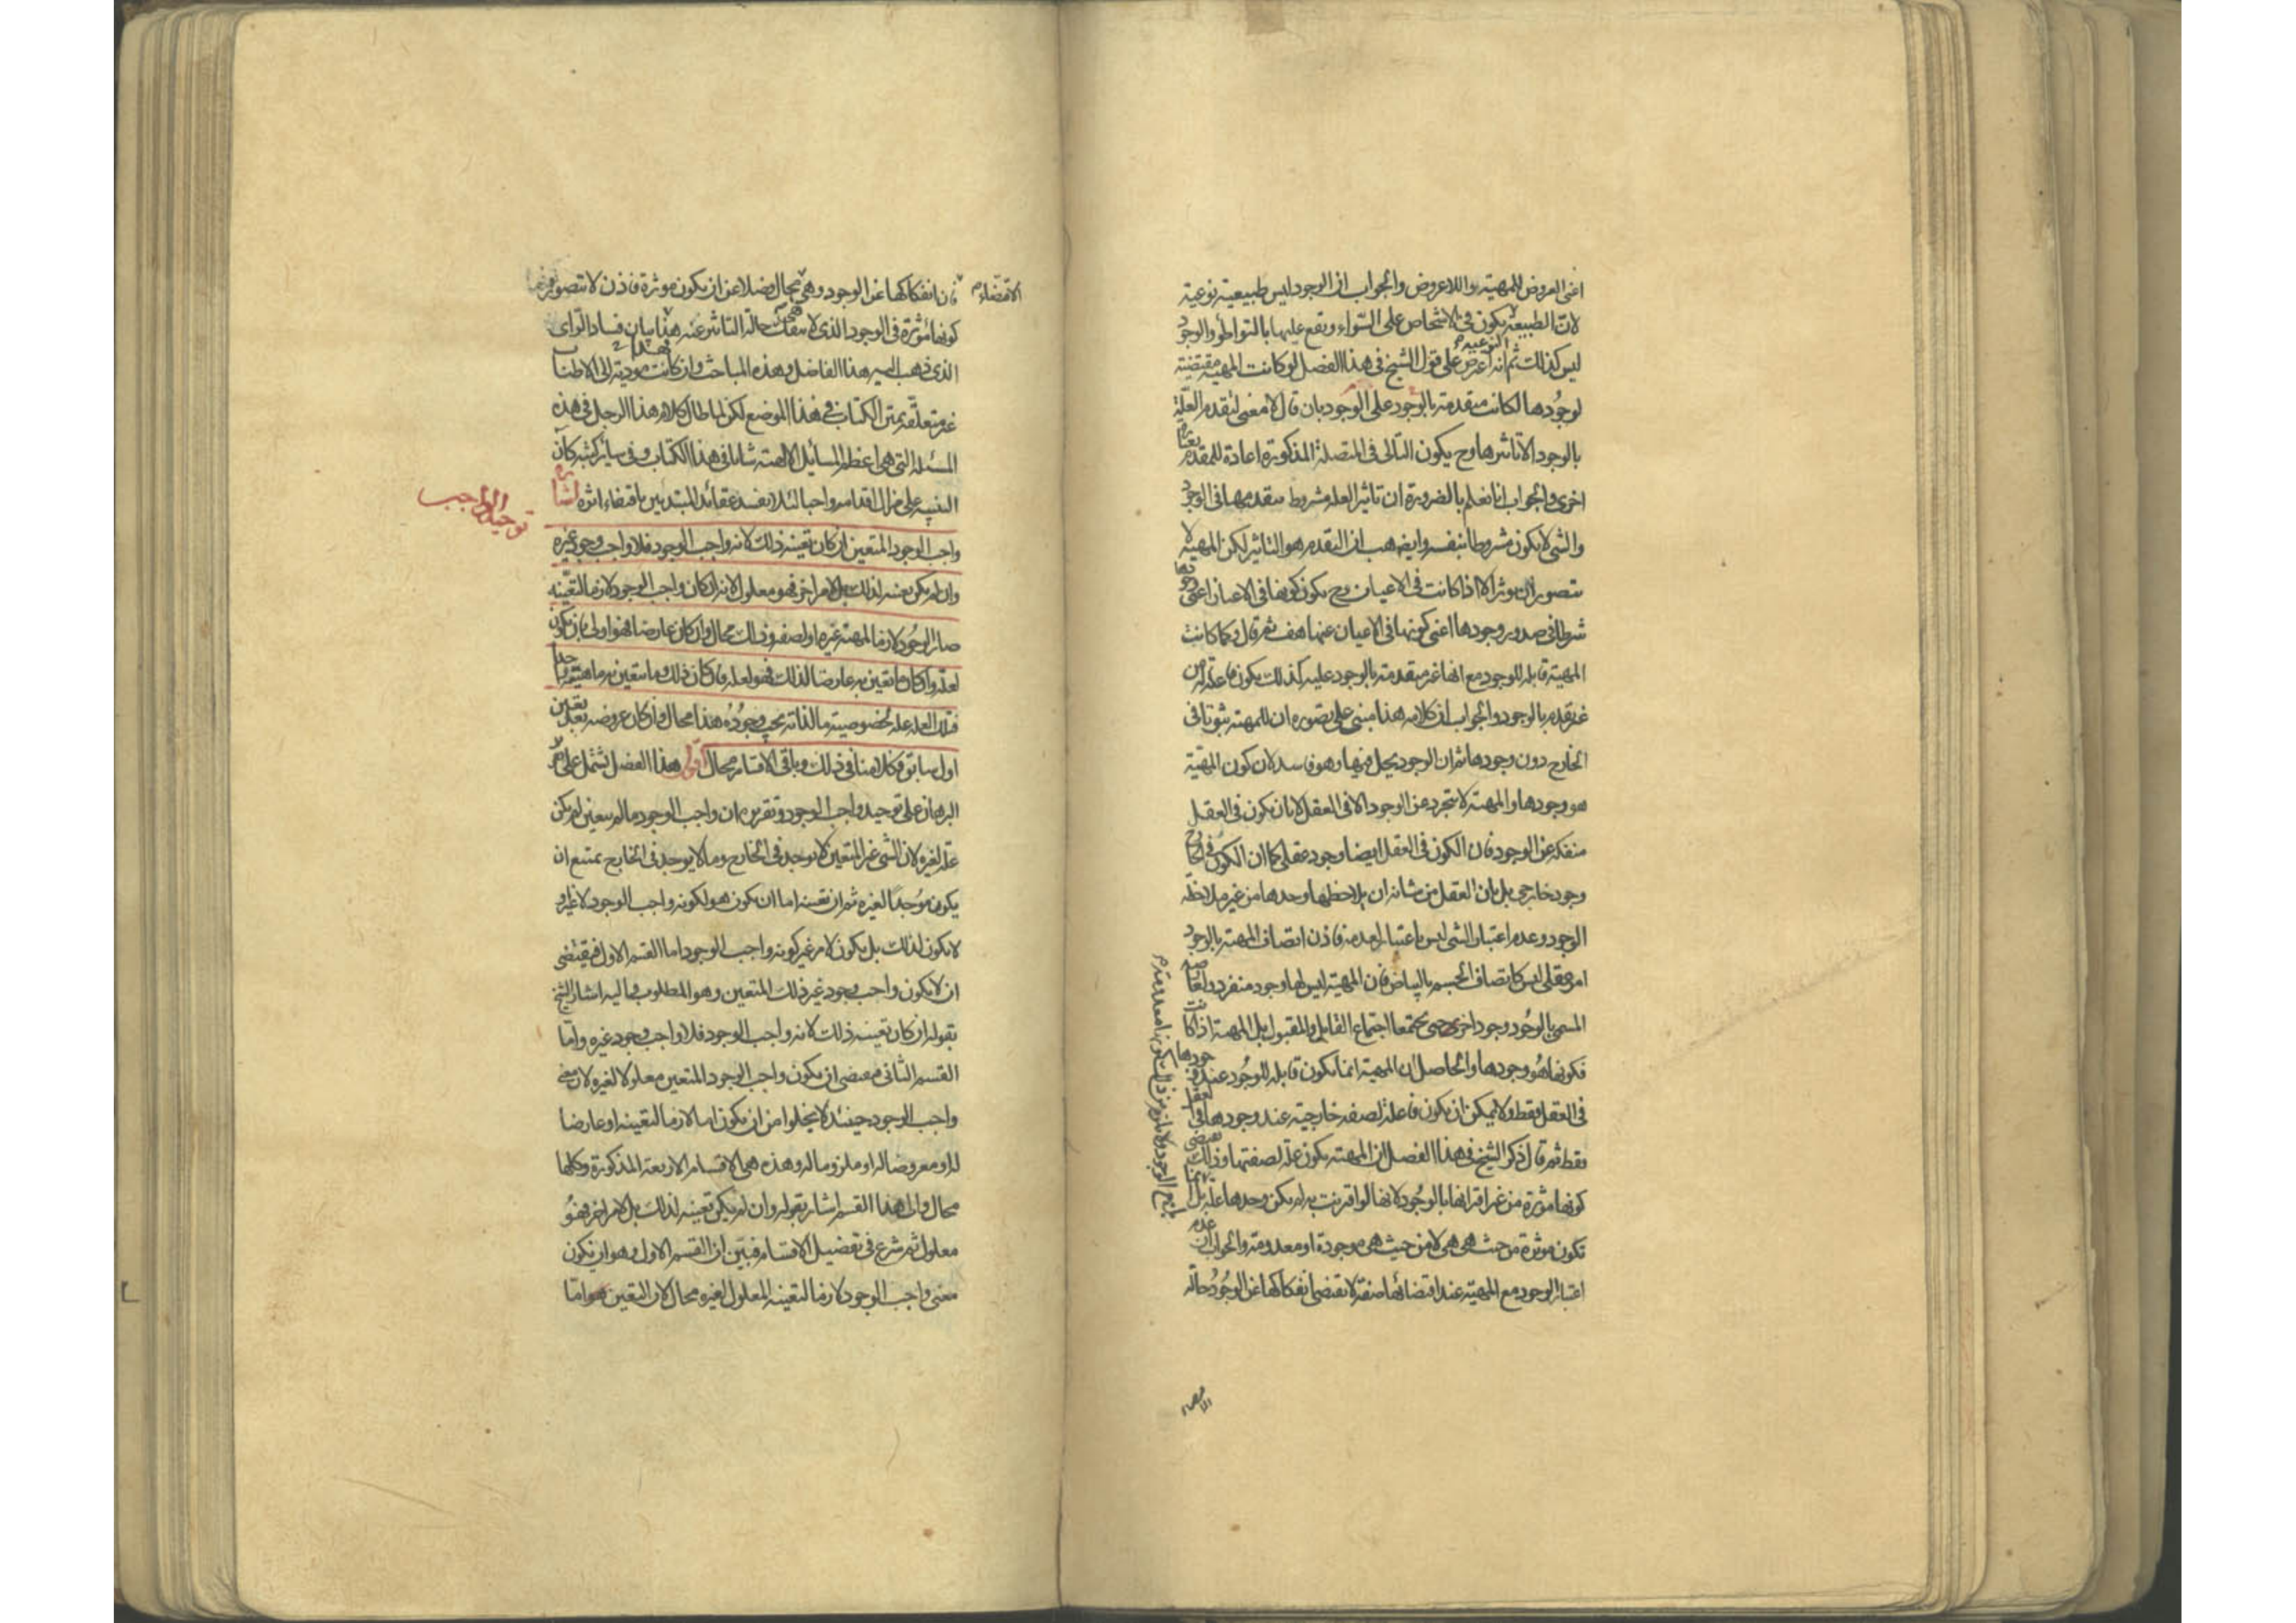 اعنى العروض للمهية واللاعروض والجواب ان الوجود ليس طبيعية نوعية
لان الطبيعة يكون فى الاشخاص على السواء ويقع عليها بالتواطؤ والوجود
النوعية م
ليس كذلك ثم انه اعترض على قول الشيخ فى هذا الفصل لو كانت المهية مقتضية
لوجودها لكانت متقدمة بالوجود على الوجود بان قال لا معنى لتقدم العلة
بالوجود الا تاثيرها وح يكون التالى فى المتصلة المذكورة اعادة للمقدم بعبارة
اخرى والجواب انا نعلم بالضرورة ان تاثير العلة مشروط بتقدمها فى الوجود
والشى لا يكون مشروطا بنفسه وايضه هب ان التقدم هو التاثير لكن المهية لا
تتصور ان يوثر الا اذا كانت فى الاعيان وح يكون كونها فى الاعيان اعنى وجودها
شرطا فى صدور وجودها اعنى كونها فى الاعيان عنها هف ثم قال وكما كانت
المهية قابلة للوجود مع انها غير متقدمة بالوجود عليه كذلك يكون فاعلة له من
غير تقدم بالوجود والجواب ان كلامه هذا مبنى على تصوره ان للمهية ثبوتا فى
الخارج دون وجودها ثم ان الوجود يحل فيها وهو فاسد لان كون المهية
هو وجودها والمهية لا تتجرد عن الوجود الا فى العقل لا بان يكون فى العقل
منفكة عن الوجود فان الكون فى العقل ايضا وجود عقلى كما ان الكون فى الخارج
وجود خارجى بل بان العقل من شانه ان يلاحظها وحدها من غير ملاحظة
الوجود وعدم اعتبار الشى ليس باعتبار لعدمه فاذن اتصاف المهية بالوجود
امر عقلى ليس كاتصاف الجسم بالبياض فان المهية ليس لها وجود منفرد ولعارضه
المسمى بالوجود وجود اخر حتى يجتمعا اجتماع القابل والمقبول بل المهية اذا كانت
فكونها هو وجودها والحاصل ان المهية انما يكون قابلة للوجود عند وجودها
فى العقل فقط ولا يمكن ان يكون فاعلة لصفة خارجية عند وجودها فى العقل
فقط ثم قال ذكر الشيخ فى هذا الفصل ان المهية يكون علة لصفتها وذلك يقتضى
كونها موثرة من غير اقترانها بالوجود لانها لو اقترنت به لم يكن وحدها علة بل
تكون موثرة من حيث هى هى لا من حيث هى موجودة او معدومة والجواب ان عدم
اعتبار الوجود مع المهية عند اقتضائها صفة لا تقتضى انفكاكها عن الوجود حالة
الاقتضاء م
فان انفكاكها عن الوجود وهى هى محال فضلا عن ان يكون موثرة فاذن لا تتصور
كونها موثرة فى الوجود الذى لا ينفك حالة التاثير عنه هذا بيان فساد الراى
الذى ذهب اليه هذا الفاضل وهذه المباحث وان كانت مودية الى الاطناب
غير متعلقة بمتن الكتاب فى هذا الموضع لكن لما طال كلام هذا الرجل فى هذه
المسئلة التى هى اعظم المسائل الالهية شانا فى هذا الكتاب وفى سائر كتبه كان
التنبيه على مزال اقدامه واجبا لئلا يفسد عقائد المبتدئين باقتفاء اثره اشارة
توحيد الواجب
واجب الوجود المتعين ان كان تعينه ذلك لانه واجب الوجود فلا واجب وجود غيره
وان لم يكن تعينه لذلك بل لامر اخر فهو معلول لانه ان كان واجب الوجود لازما لتعينه
صار الوجود لازما لمهية غيره او لصفة وذلك محال وان كان عارضا فهو اولى بان يكون
لعلة وان كان ما تعين به عارضا لذلك فهو لعلة فان كان ذلك وما تتعين به ماهيته واحدا
فتلك العلة علة لخصوصية ما لذاته يجب وجوده هذا محال وان كان عروضه بعد تعين
اول سابق فكلامنا فى ذلك وباقى الاقسام محال اقول هذا الفصل يشتمل على
البرهان على توحيد واجب الوجود وتقريره ان واجب الوجود ما لم يتعين لم يكن
علة لغيره لان الشى غير المتعين لا يوجد فى الخارج وما لا يوجد فى الخارج يمتنع ان
يكون موجدا لغيره ثم ان تعينه اما ان يكون هو لكونه واجب الوجود لا غير او
لا يكون لذلك بل يكون لامر غير كونه واجب الوجود اما القسم الاول فيقتضى
ان لا يكون واجب وجود غير ذلك المتعين وهو المطلوب واليه اشار الشيخ
بقوله ان كان تعينه ذلك لانه واجب الوجود فلا واجب وجود غيره واما
القسم الثانى فيقتضى ان يكون واجب الوجود المتعين معلولا لغيره لان معنى
واجب الوجود حينئذ لا يخلوا من ان يكون اما لازما لتعينه او عارضا
له او معروضا له او ملزوما له وهذه هى الاقسام الاربعة المذكورة وكلها
محال والى هذا القسم اشار بقوله وان لم يكن تعينه لذلك بل لامر اخر فهو
معلول ثم شرع فى تفصيل الاقسام فبين ان القسم الاول وهو ان يكون
معنى واجب الوجود لازما لتعينه المعلول لغيره محال لان التعين هو اما